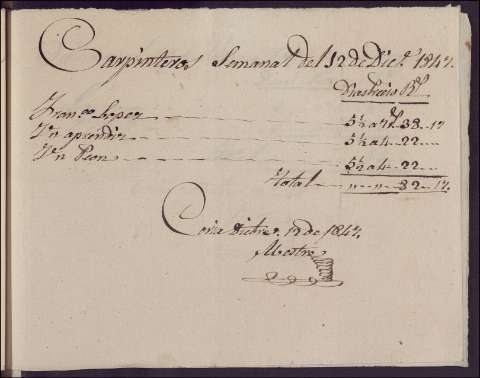 Carpinteros Semana 1 del 12 de Dicᵉ 1847.
Dias Rˢ
Franᶜᵒ Lopez 5½ a 7 38 17
Yn aprendiz 5½ a 4 22
Yn Peon 5½ a 4 22
Total 82 17
Coria Dicbre 12 de 1847.
Mestre